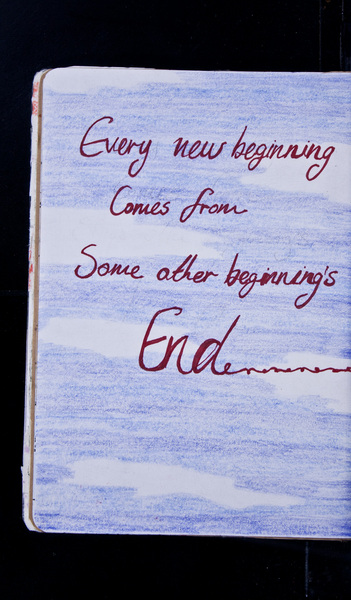 Every new beginning
Comes from
Some other beginning's
End